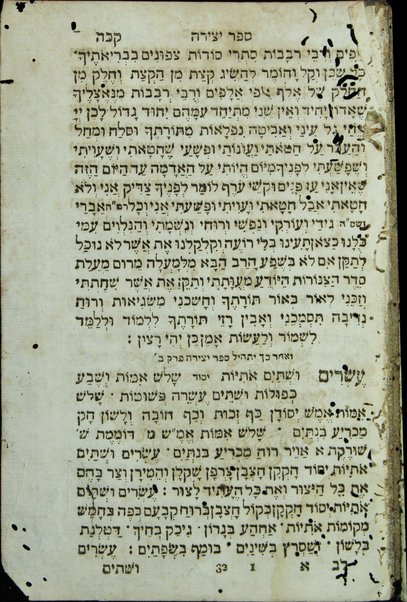 ספר יצירה קכה
אלפים ורבי רבבות סתרי סודות צפונים בבריאתיך
כל שכן וקל וחומר להשיג קצת מן הקצת וחלק מן
החלק של אלף אלפי אלפים ורבי רבבות מנאצליך
שאדון יחיד ואין שני מתיחד עמהם יחוד גדול לכן יי
צורי גל עיני ואביטה נפלאות מתורתך וסלח ומחל
והעבר על חטאתי ועונותי ופשעי שחטאתי ושעויתי
ושפשעתי לפניך מיום היותי על האדמה עד היום הזה
שאין אני עז פנים וקשי ערף לומר לפניך צדיק אני ולא
חטאתי אבל חטאתי ועויתי ופשעתי אני וכל רמ״ח אברי
ושס״ה גידי ועורקי ונפשי ורוחי ונשמתי והגלוים עמי
כלנו כצאן תעינו בלי רועה וקלקלנו את אשר לא נוכל
לתקן אם לא בשפע הרב הבא מלמעלה מרום מעלת
סדר הצנורות היודע מעותתי ותקן את אשר שחתתי
וזכני לאור באור תורתך וחשכני משגיאות ורוח
נדיבה תסמכני ואבין רזי תורתך ללמוד וללמד
לשמור ולעשות אמן כן יהי רצון :
ואחר כך יתחיל ספר יצירה פרק ב׳
עשרים ושתים אותיות יסוד שלש אמות ושבע
כפולות ושתים עשרה פשוטות · שלש
אמות אמש יסודן כף זכות וכף חובה ולשון חק
מכריע בנתים · שלש אמות אמ״ש מ דוממת ש׳
שורקת א אויר רוח מכריע בנתים · עשרים ושתים
אותיות יסוד חקקן חצבן צרפן שקלן והמירן וצר בהם
את כל היצור ואת כל העתיד לצור : עשרים ושתים
אותיות יסוד חקקן בקול חצבן ברוח קבעם בפה בחמש
מקומות אותיות אחהע בגרון · גיכק בחיך דטלנת
בלשון זשסרץ בשינים · בומף בשפתים : עשרים
לב א 1 32 ושתים